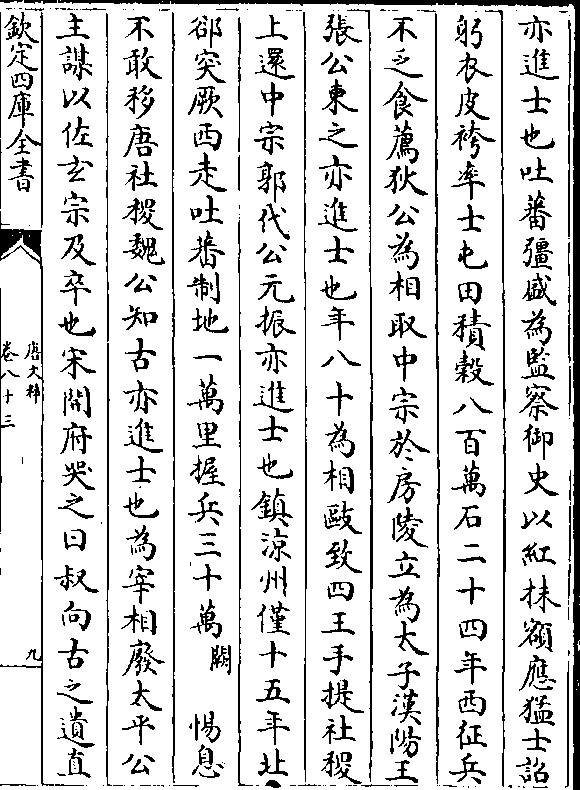 亦進士也吐蕃彊盛為監察御史以紅抹額應猛士詔
躬衣皮袴率士屯田積穀八百萬石二十四年西征兵
不乏食薦狄公為相取中宗於房陵立為太子漢陽王
張公柬之亦進士也年八十為相毆致四王手提社稷
上還中宗郭代公元振亦進士也鎮涼州僅十五年北
郤突厥西走吐蕃制地一萬里握兵三十萬闕惕息
不敢移唐社稷魏公知古亦進士也為宰相廢太平公
主謀以佐玄宗及卒也宋開府哭之曰叔向古之遺直
欽定四庫全書
唐文粹
卷八十三
九